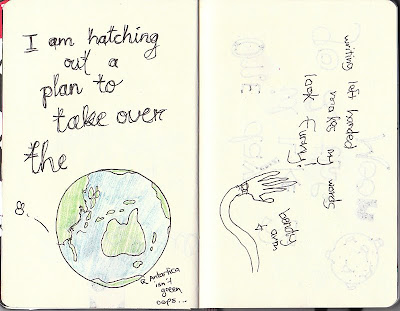 I am hatching
out a
plan to
take over
the
8.
Antartica
isn't
green
oops...
writing left handed
makes my words
look funny!
bendy
arm